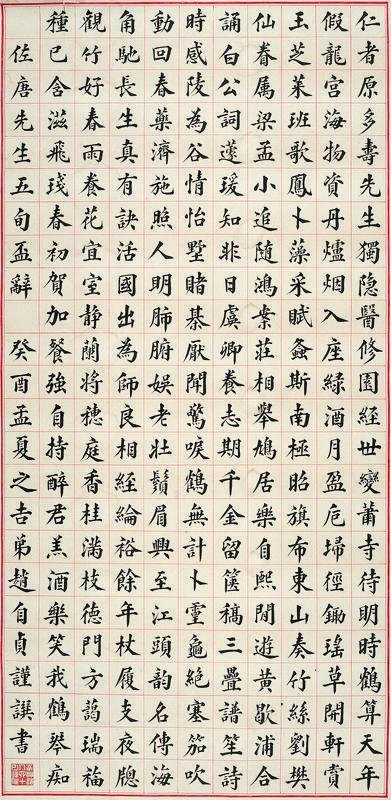 仁者原多壽先生獨隐醫修園經世變蕭寺待明時鶴算天年
假龍宮海物資丹爐烟入座綠酒月盈卮埽徑鋤瑤草開軒賞
玉芝萊班歌鳳卜藻采賦螽斯南極昭旗布東山奏竹絲劉樊
仙眷属梁孟小追随鴻案莊相舉鳩居樂自熙閒遊黄歇浦合
誦白公詞蘧瑗知非日虞卿養志期千金留篋稿三疊譜笙詩
時感陵為谷情怡墅賭棊厭聞驚唳鶴無計卜靈龜絕塞笳吹
動回春藥濟施照人明肺腑娛老壯鬚眉興至江頭韵名傳海
角馳長生真有訣活國出為師良相經綸裕餘年杖履支夜牕
觀竹好春雨養花宜室静蘭將穗庭香桂滿枝德門方藹瑞福
種已含滋飛琖春初賀加餐強自持醉君羔酒樂笑我鶴琴痴
佐唐先生五旬盃辭 癸酉孟夏之吉弟趙自貞謹譔書